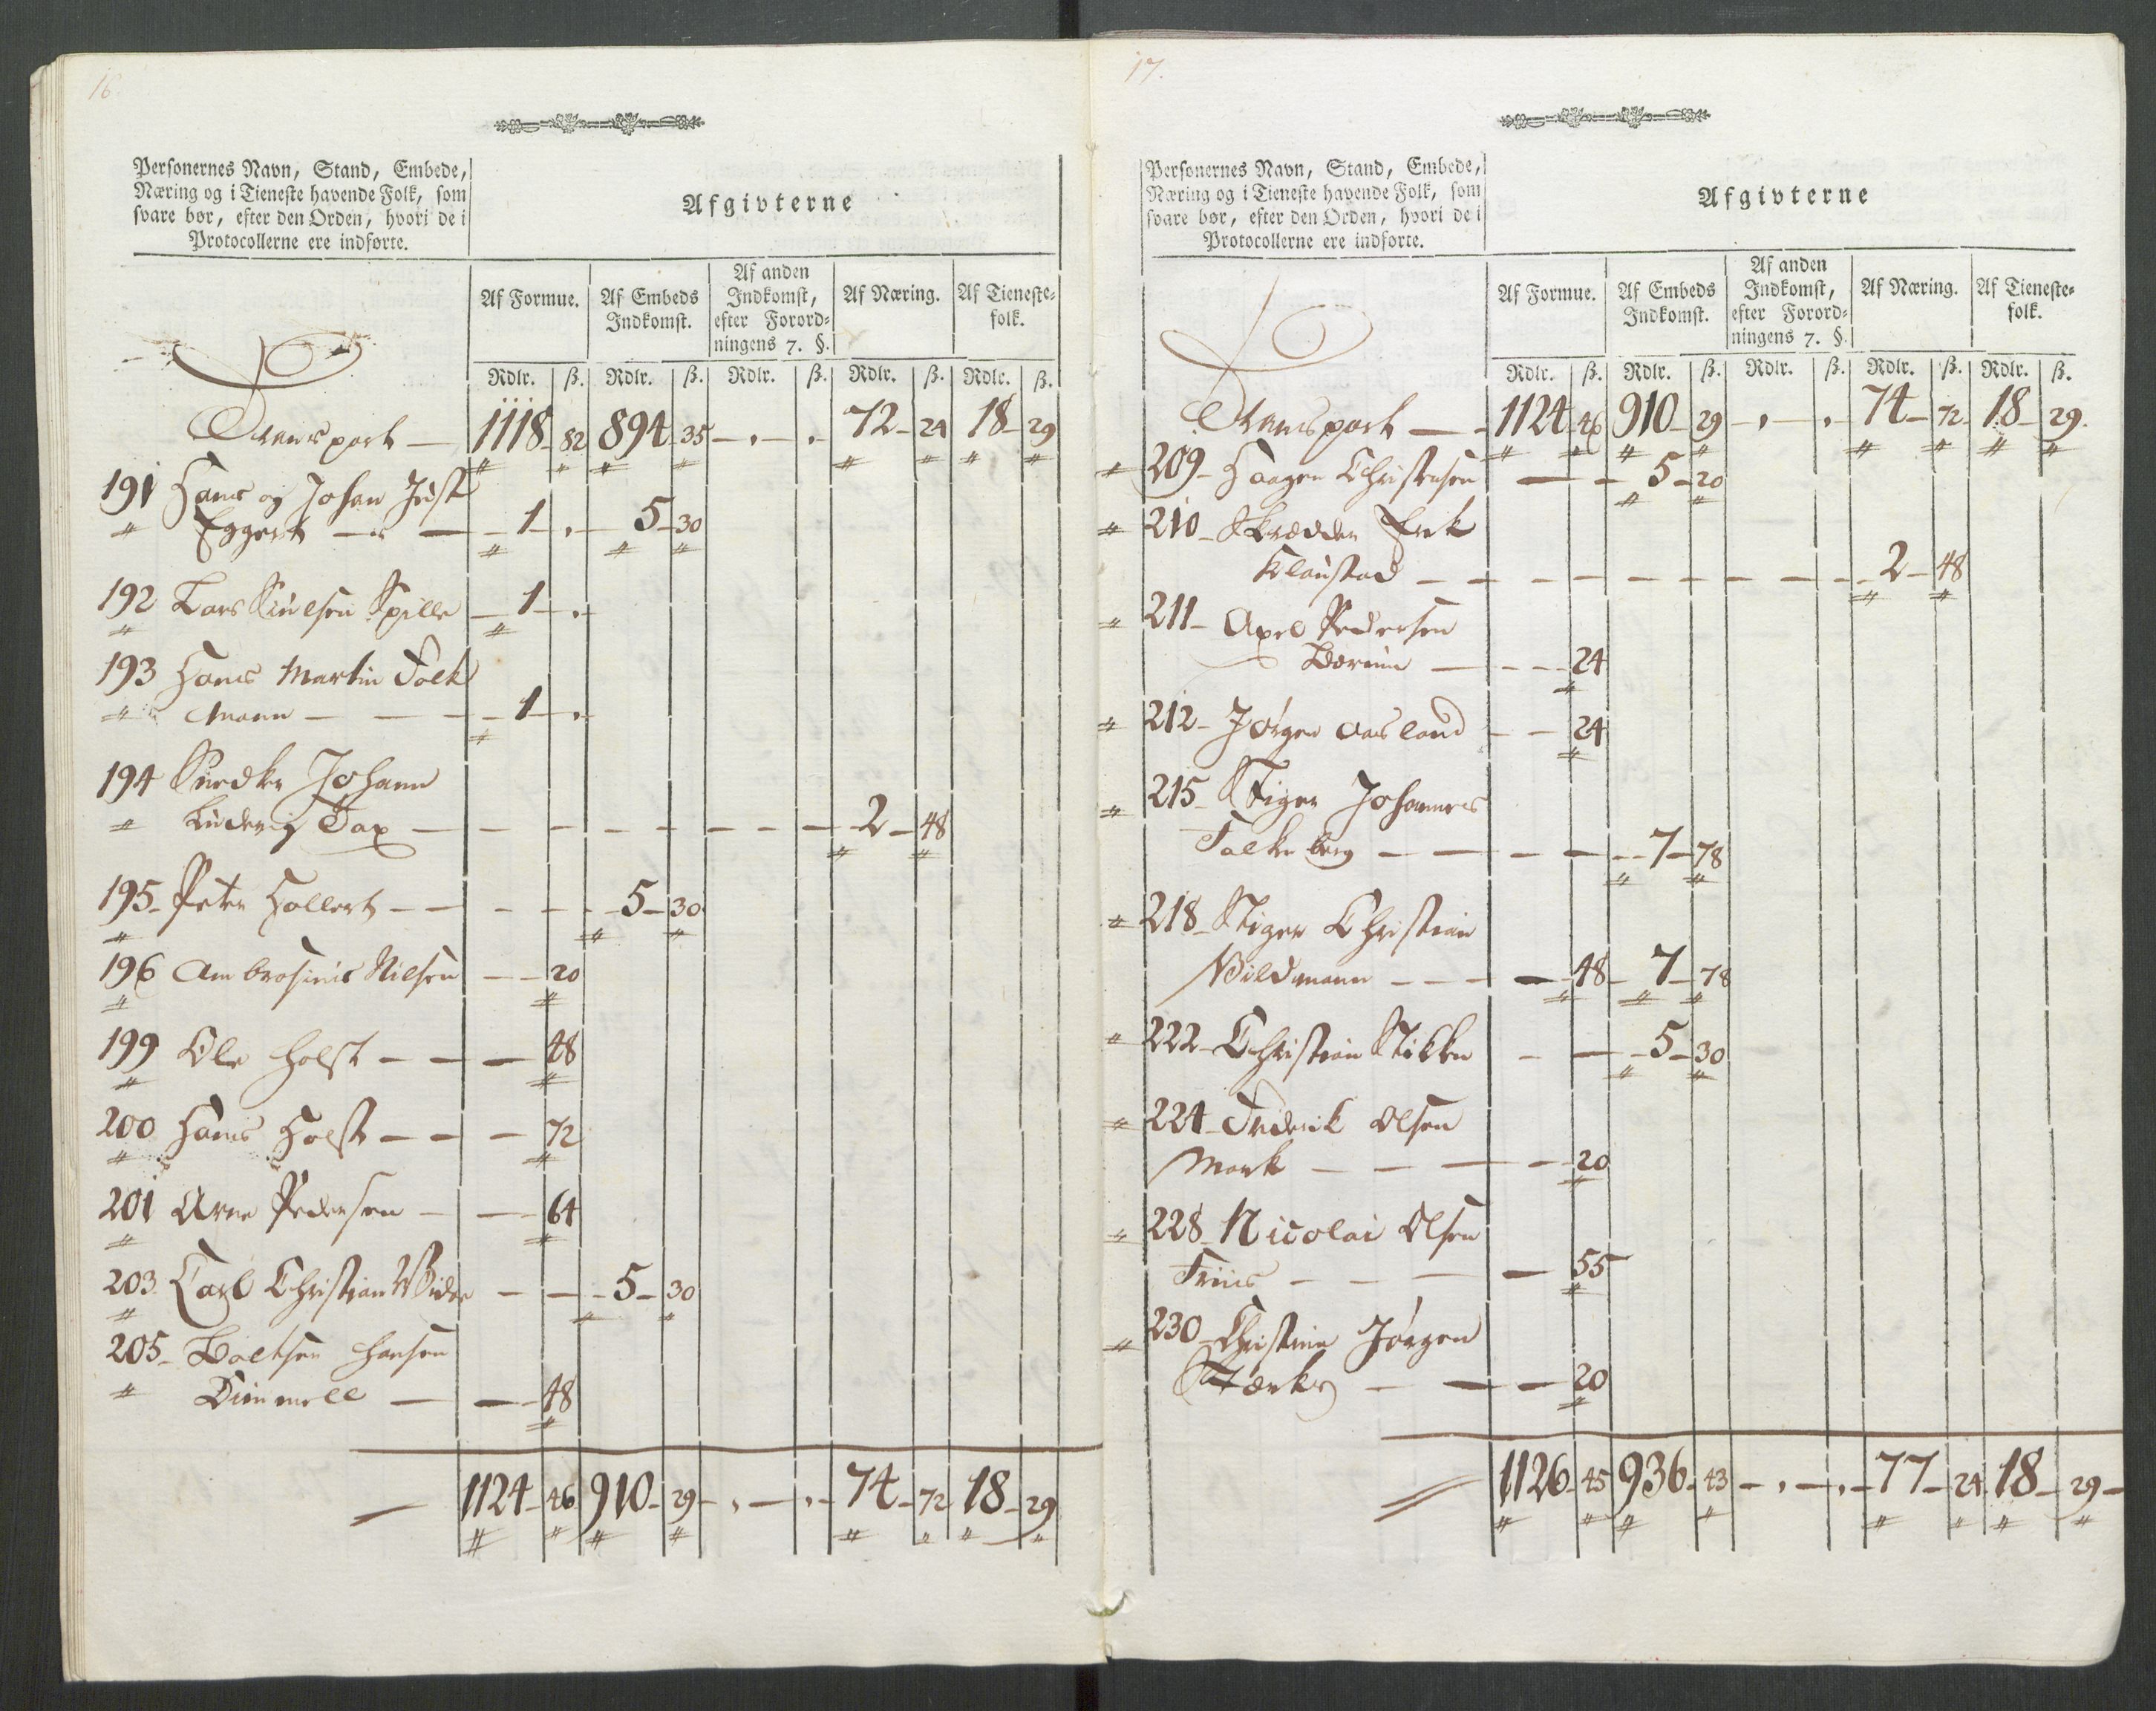 16
Personernes Navn, Stand, Embede,
Næring og i Tieneste havende Folk, som
svare bør, efter den Orden, hvori de i
Protocollerne ere indførte.
Afgivterne
Af Formue. Af Embeds Indkomst. Af anden Indkomst, efter Forordningens 7. §. Af Næring. Af Tienestefolk.
Rdlr. ß. Rdlr. ß. Rdlr. ß. Rdlr. ß. Rdlr. ß.
Transport — 1118 - 82 894 - 35 - . - . 72 - 24 18 - 29
191 Hans og Johan Just
Eggert — 1 - . 5 - 30
192 Lars Siulsen Spille — 1 - .
193 Hans Martin Folk
mann — 1 - .
194 Snedker Johann
Ludevig Tax — 2 - 48
195 - Peter Hollert — 5 - 30
196 Ambrosius Nilsen — 20
199 Ole Holst — 48
200 Hans Holst — 72
201 Arne Pedersen — 64
203 Carl Christian Wide — 5 - 30
205 - Baltser Hansen
Dimmell — 48
1124 - 46 910 - 29 - . - . - 74 - 72 18 - 29
17.
Personernes Navn, Stand, Embede,
Næring og i Tieneste havende Folk, som
svare bør, efter den Orden, hvori de i
Protocollerne ere indførte.
Afgivterne
Af Formue. Af Embeds Indkomst. Af anden Indkomst, efter Forordningens 7. §. Af Næring. Af Tienestefolk.
Rdlr. ß. Rdlr. ß. Rdlr. ß. Rdlr. ß. Rdlr. ß.
Transport — 1124 46 910 - 29 - . - . 74 - 72 - 18 - 29.
209 - Haagen Christensen — 5 - 20
210 - Skrædder Erik
Klaustad — 2 - 48
211 - Axel Pedersen
Bærum — 24
212 - Jørgen Aasland — 24
215 - Stiger Johannes
Falkenberg — 7 - 78
218 - Stiger Christian
Wildmann — 48 - 7 - 78
222 - Christian Stikker — 5 - 30
224 - Friderick Olsen
Mork — 20
228 - Nicolai Olsen
Friis — 55
230 - Christian Jørgen
Stærk — 20
1126 - 45 936 - 43 - . - . - 77 - 24 18 - 29 -